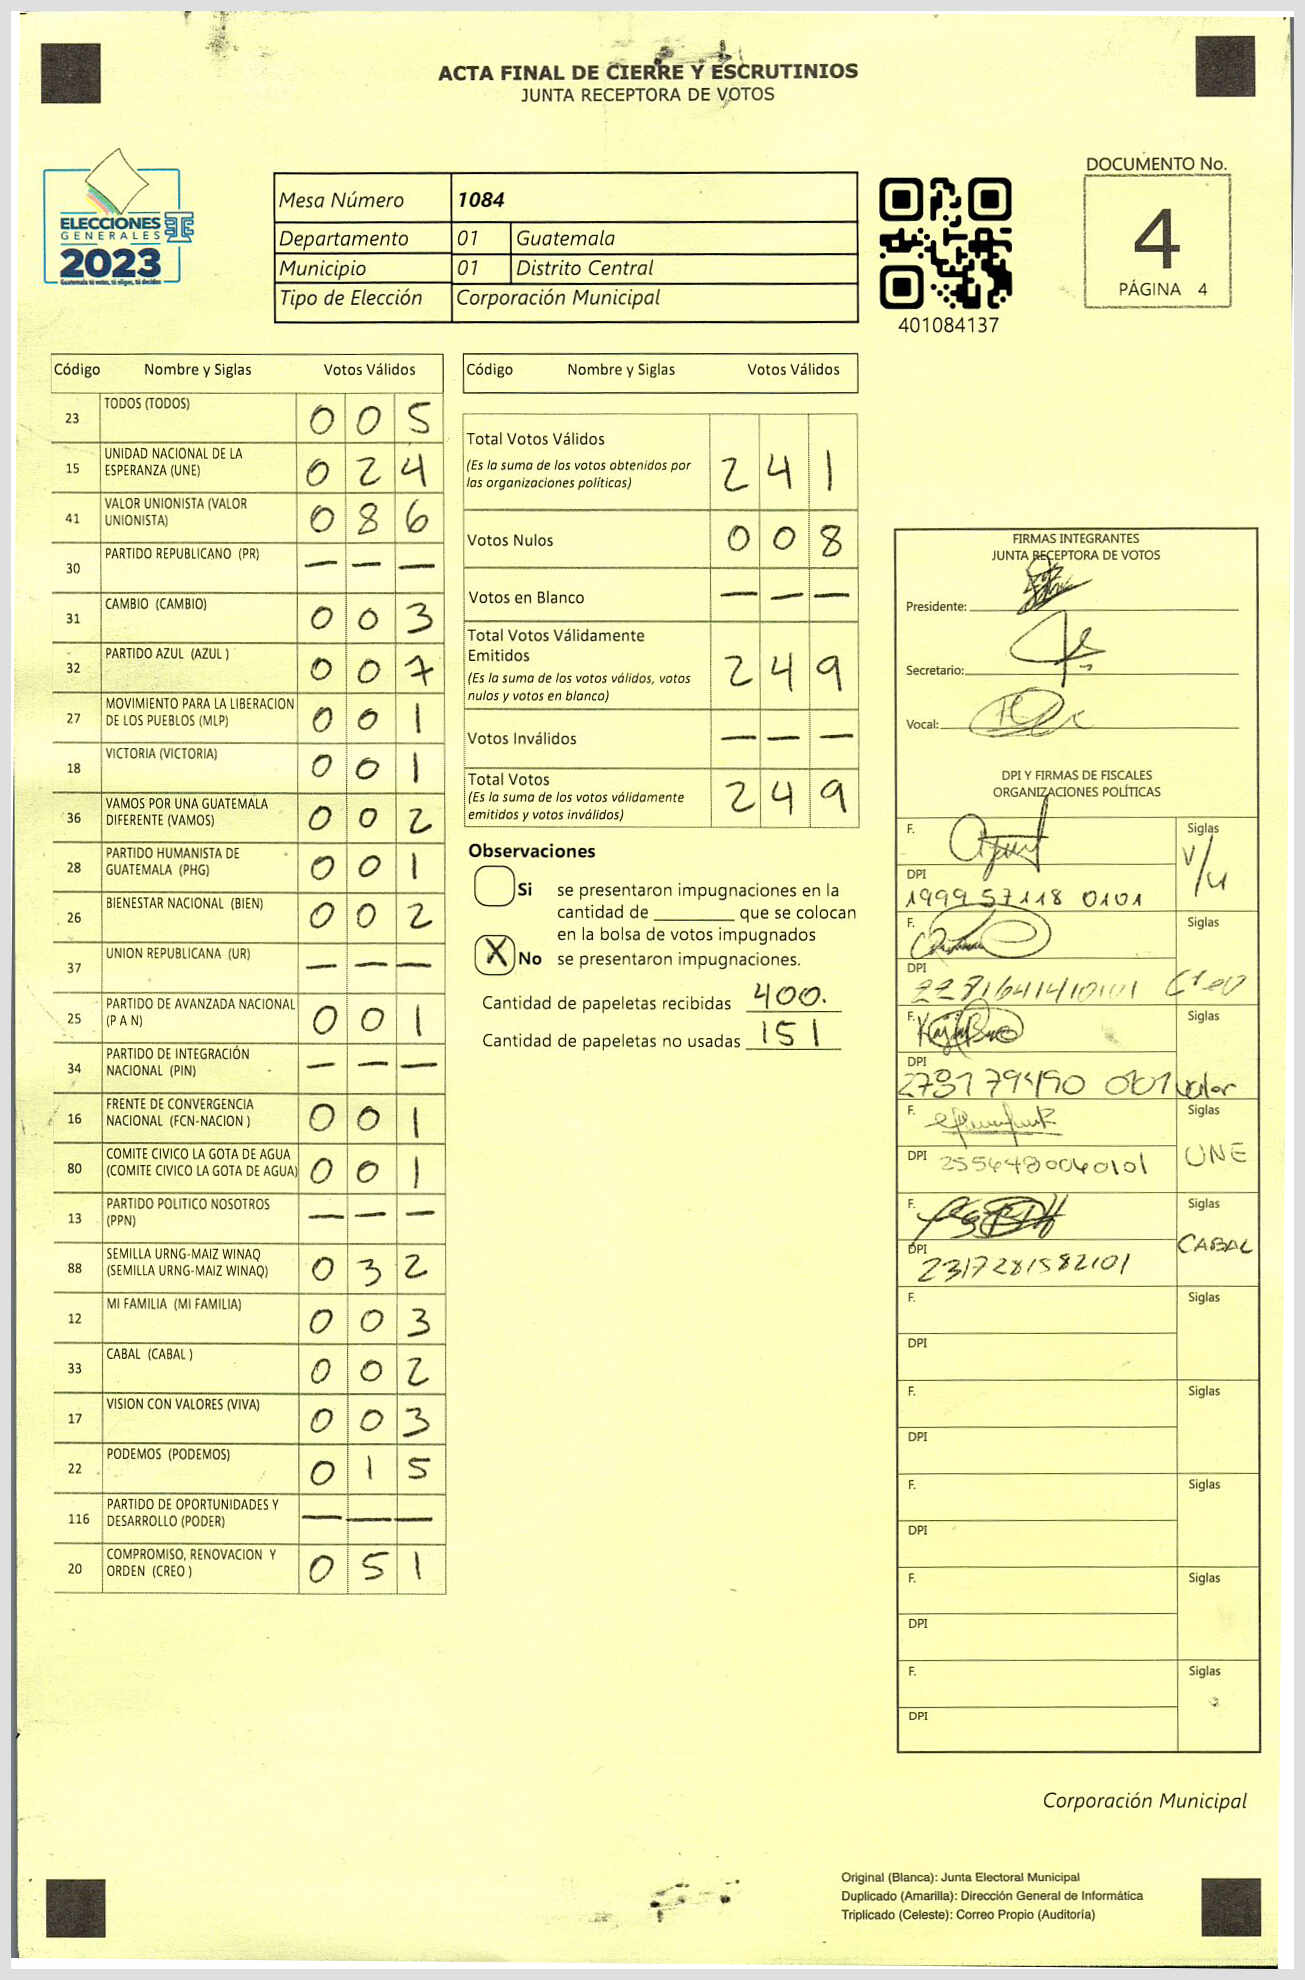 ACTA FINAL DE CIERRE Y ESCRUTINIOS
JUNTA RECEPTORA DE VOTOS
ELECCIONES
GENERALES
2023
Guatemala tú votas, tú eliges, tú decides
Mesa Número 1084
Departamento 01 Guatemala
Municipio 01 Distrito Central
Tipo de Elección Corporación Municipal
401084137
DOCUMENTO No.
4
PÁGINA 4
Código Nombre y Siglas Votos Válidos
23 TODOS (TODOS) 0 0 5
15 UNIDAD NACIONAL DE LA
ESPERANZA (UNE) 0 2 4
41 VALOR UNIONISTA (VALOR
UNIONISTA) 0 8 6
30 PARTIDO REPUBLICANO (PR) — — —
31 CAMBIO (CAMBIO) 0 0 3
32 PARTIDO AZUL (AZUL ) 0 0 7
27 MOVIMIENTO PARA LA LIBERACION
DE LOS PUEBLOS (MLP) 0 0 1
18 VICTORIA (VICTORIA) 0 0 1
36 VAMOS POR UNA GUATEMALA
DIFERENTE (VAMOS) 0 0 2
28 PARTIDO HUMANISTA DE
GUATEMALA (PHG) 0 0 1
26 BIENESTAR NACIONAL (BIEN) 0 0 2
37 UNION REPUBLICANA (UR) — — —
25 PARTIDO DE AVANZADA NACIONAL
(P A N) 0 0 1
34 PARTIDO DE INTEGRACIÓN
NACIONAL (PIN) — — —
16 FRENTE DE CONVERGENCIA
NACIONAL (FCN-NACION ) 0 0 1
80 COMITE CIVICO LA GOTA DE AGUA
(COMITE CIVICO LA GOTA DE AGUA) 0 0 1
13 PARTIDO POLITICO NOSOTROS
(PPN) — — —
88 SEMILLA URNG-MAIZ WINAQ
(SEMILLA URNG-MAIZ WINAQ) 0 3 2
12 MI FAMILIA (MI FAMILIA) 0 0 3
33 CABAL (CABAL ) 0 0 2
17 VISION CON VALORES (VIVA) 0 0 3
22 PODEMOS (PODEMOS) 0 1 5
116 PARTIDO DE OPORTUNIDADES Y
DESARROLLO (PODER) — — —
20 COMPROMISO, RENOVACION Y
ORDEN (CREO ) 0 5 1
Código Nombre y Siglas Votos Válidos
Total Votos Válidos
(Es la suma de los votos obtenidos por
las organizaciones políticas) 2 4 1
Votos Nulos 0 0 8
Votos en Blanco — — —
Total Votos Válidamente
Emitidos
(Es la suma de los votos válidos, votos
nulos y votos en blanco) 2 4 9
Votos Inválidos — — —
Total Votos
(Es la suma de los votos válidamente
emitidos y votos inválidos) 2 4 9
Observaciones
Si se presentaron impugnaciones en la
cantidad de ________ que se colocan
en la bolsa de votos impugnados
X No se presentaron impugnaciones.
Cantidad de papeletas recibidas 400.
Cantidad de papeletas no usadas 151
FIRMAS INTEGRANTES
JUNTA RECEPTORA DE VOTOS
Presidente:
Secretario:
Vocal:
DPI Y FIRMAS DE FISCALES
ORGANIZACIONES POLÍTICAS
F. Siglas
V/U
DPI
1999 57118 0101
F. Siglas
DPI
F. Siglas
DPI
Valor
F. Siglas
DPI 2556480060101 UNE
F. Siglas
CABAL
DPI
2317281582101
F. Siglas
DPI
F. Siglas
DPI
F. Siglas
DPI
F. Siglas
DPI
F. Siglas
DPI
Corporación Municipal
Original (Blanca): Junta Electoral Municipal
Duplicado (Amarilla): Dirección General de Informática
Triplicado (Celeste): Correo Propio (Auditoría)